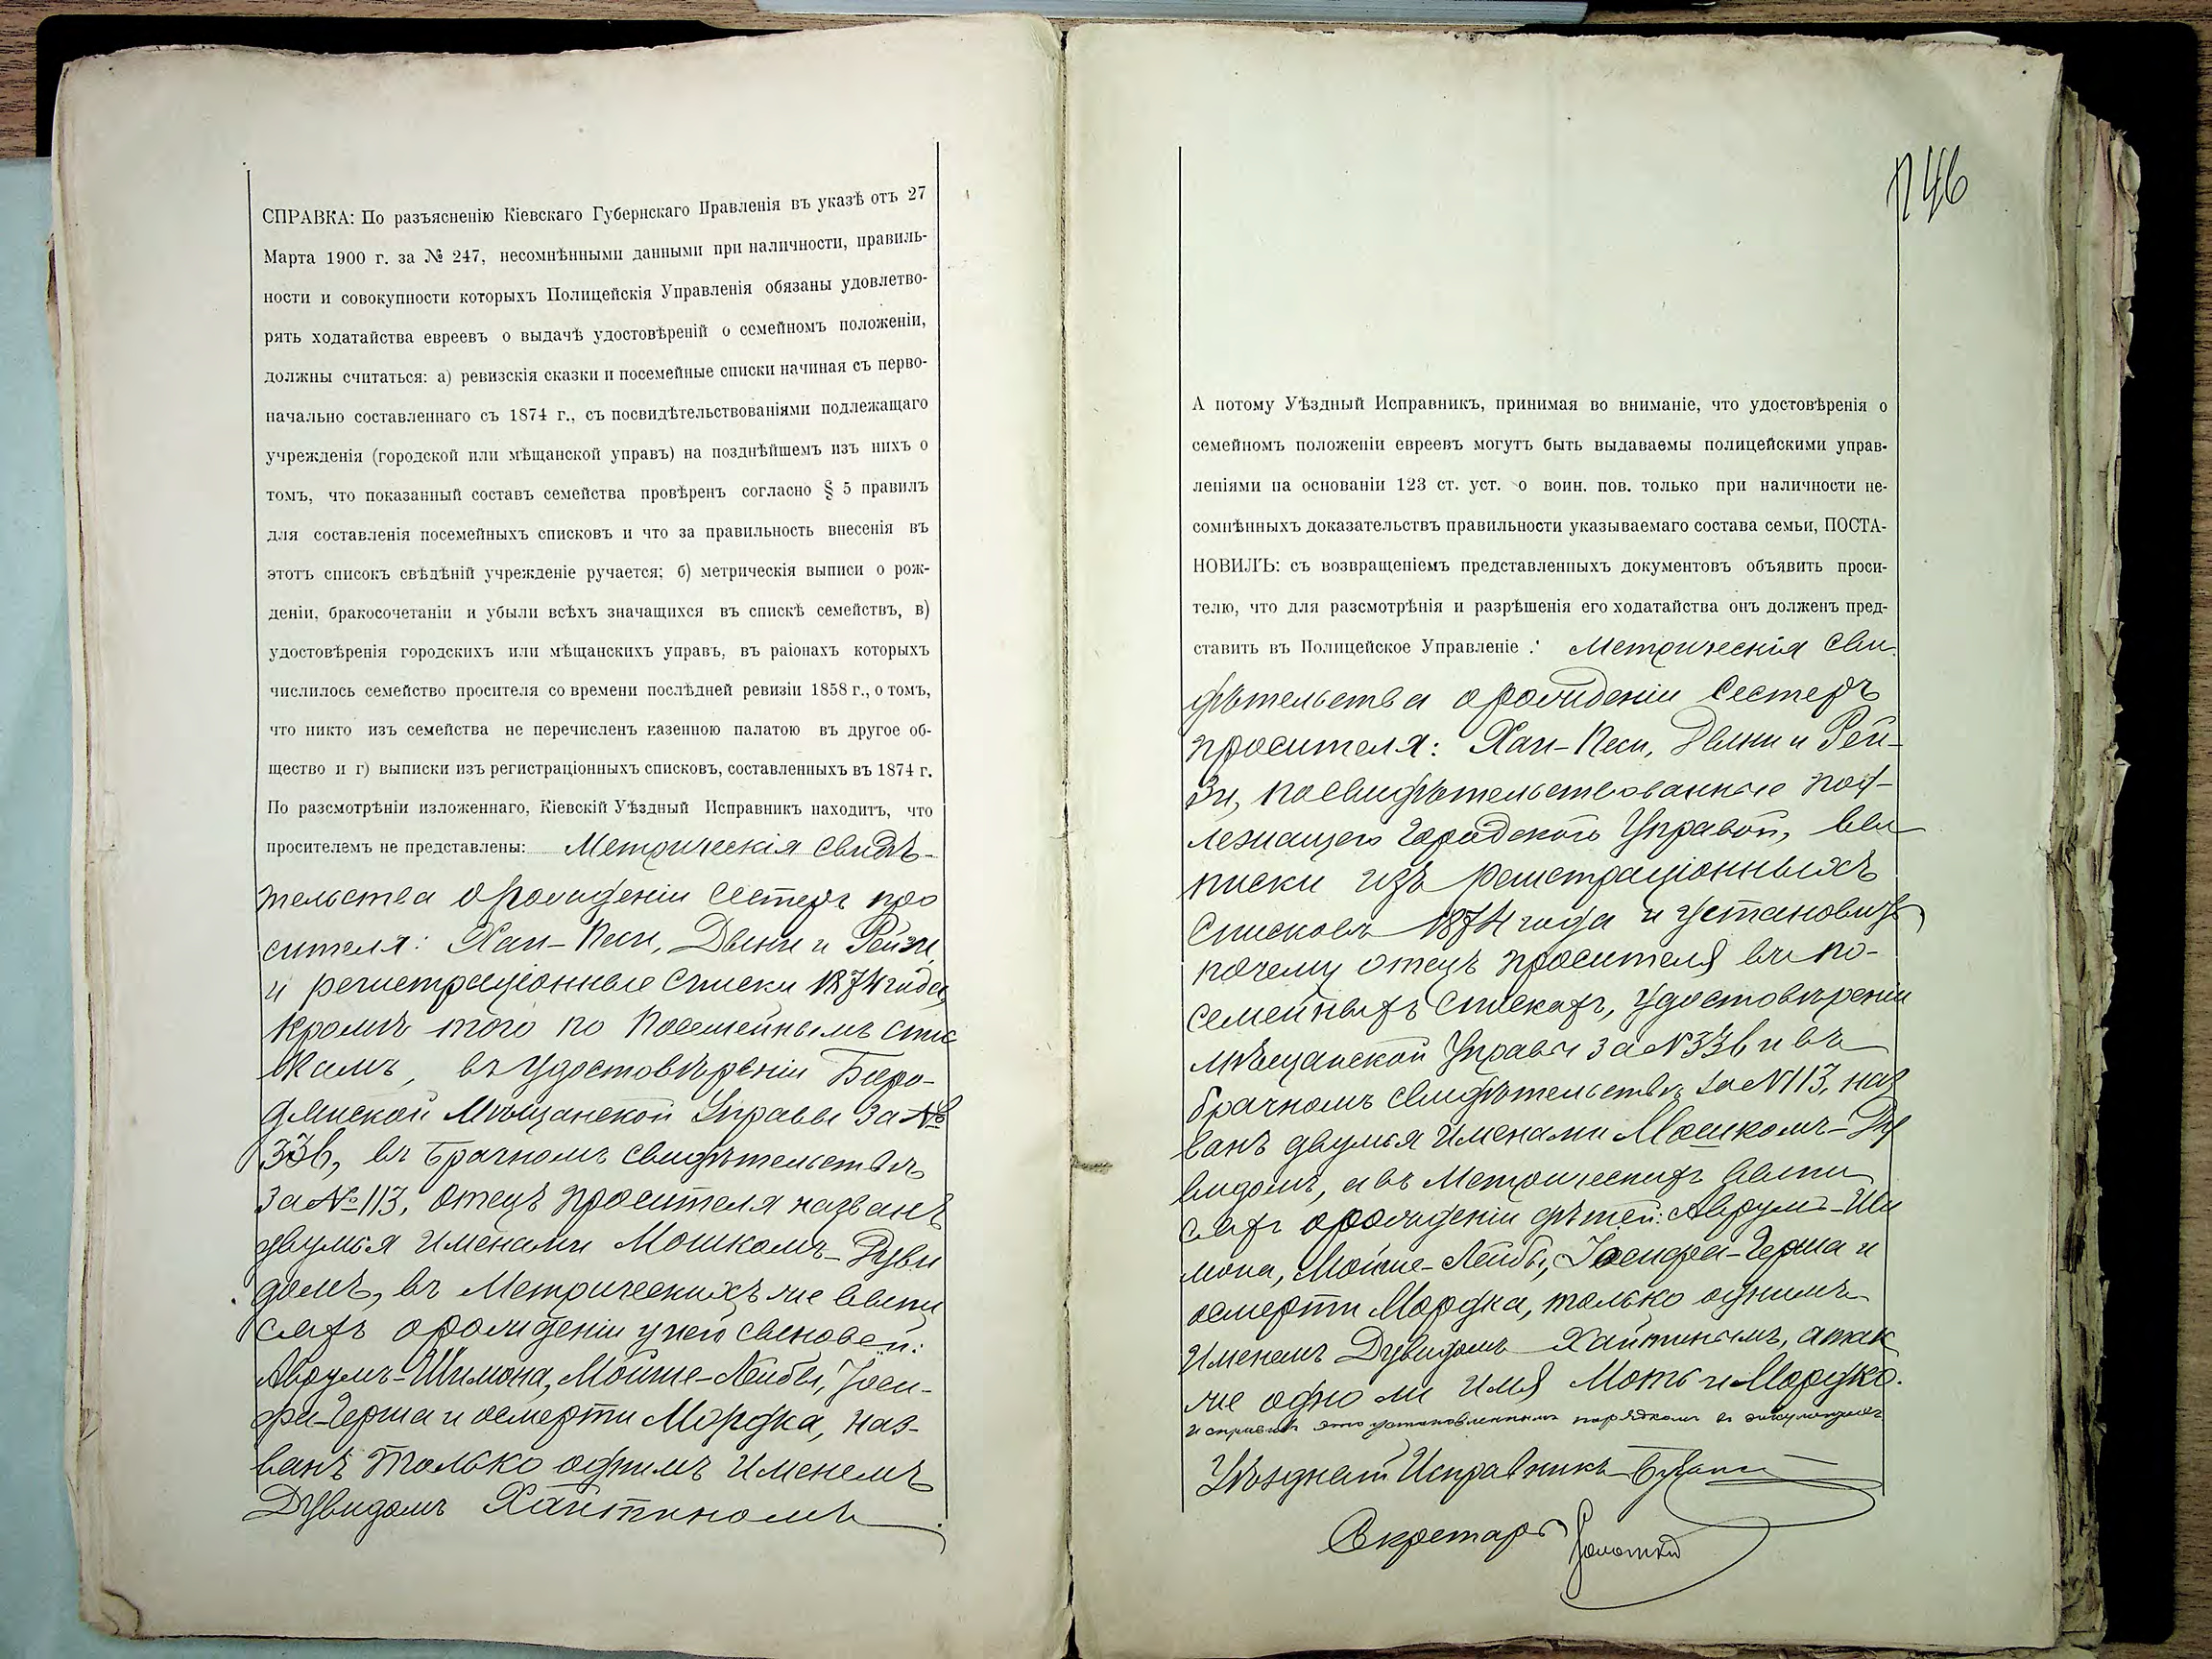 СПРАВКА: По разъясненію Кіевскаго Губернскаго Правленія въ указѣ отъ 27
Марта 1900 г. за № 247, несомнѣнными данными при наличности, правиль-
ности и совокупности которыхъ Полицейскія Управленія обязаны удовлетво-
рять ходатайства евреевъ о выдачѣ удостовѣреній о семейномъ положеніи,
должны считаться: а) ревизскія сказки и посемейные списки начиная съ перво-
начально составленнаго съ 1874 г., съ посвидѣтельствованіями подлежащаго
учрежденія (городской или мѣщанской управъ) на позднѣйшемъ изъ нихъ о
томъ, что показанный составъ семейства провѣренъ согласно § 5 правилъ
для составленія посемейныхъ списковъ и что за правильность внесенія въ
этотъ списокъ свѣдѣній учрежденіе ручается; б) метрическія выписи о рож-
деніи, бракосочетаніи и убыли всѣхъ значащихся въ спискѣ семействъ, в)
удостовѣренія городскихъ или мѣщанскихъ управъ, въ раіонахъ которыхъ
числилось семейство просителя со времени послѣдней ревизіи 1858 г., о томъ,
что никто изъ семейства не перечисленъ казенною палатою въ другое об-
щество и г) выписки изъ регистраціонныхъ списковъ, составленныхъ въ 1874 г.
По разсмотрѣніи изложеннаго, Кіевскій Уѣздный Исправникъ находитъ, что
просителемъ не представлены: Метрическія свидѣ-
тельства о рожденіи сестеръ про
сителя: Хаи-Песи, Двейи и Рейзи,
и регистраціонные списки 1874 года,
кромѣ того по посемейнымъ спис
камъ, въ удостовѣреніи Боро-
дянской Мѣщанской Управы за №
336, въ брачномъ свидѣтельствѣ
за № 113, отецъ просителя названъ
двумья именами Мошкомъ-Дуви
домъ, въ Метрическихъ же выпи
сяхъ о рожденіи у него сыновей:
Аврумъ-Шимона, Мойше-Лейбы, Іоси-
фа-Герша и о смерти Мордка, наз-
ванъ только однимъ именемъ
Дувидомъ Хайтиномъ.
1746
А потому Уѣздный Исправникъ, принимая во вниманіе, что удостовѣренія о
семейномъ положеніи евреевъ могутъ быть выдаваемы полицейскими управ-
леніями на основаніи 123 ст. уст. о воин. пов. только при наличности не-
сомнѣнныхъ доказательствъ правильности указываемаго состава семьи, ПОСТА-
НОВИЛЪ: съ возвращеніемъ представленныхъ документовъ объявить проси-
телю, что для разсмотрѣнія и разрѣшенія его ходатайства онъ долженъ пред-
ставить въ Полицейское Управленіе: Метрическія сви-
дѣтельства о рожденіи сестеръ
просителя: Хаи-Песи, Двейи и Рей-
зи, посвидѣтельствованные под-
лежащею Городскою Управой, вы
писки изъ регистраціонныхъ
списковъ 1874 года и установить,
почему отецъ просителя въ по-
семейныхъ спискахъ, удостовѣреніи
мѣщанской Управы за № 336 и въ
брачномъ свидѣтельствѣ за № 113, наз
ванъ двумья именами Мошкомъ-Ду
видомъ, а въ Метрическихъ выпи
сяхъ о рожденіи дѣтей: Аврумъ-Ши
мона, Мойше-Лейбы, Іосифа-Герша и
о смерти Мордка, только однимъ
именемъ Дувидомъ Хайтинымъ, а так
же одно ли имя Моть и Мордко.
и справить это установленнымъ порядкомъ въ
Уѣздный Исправникъ
Секретарь